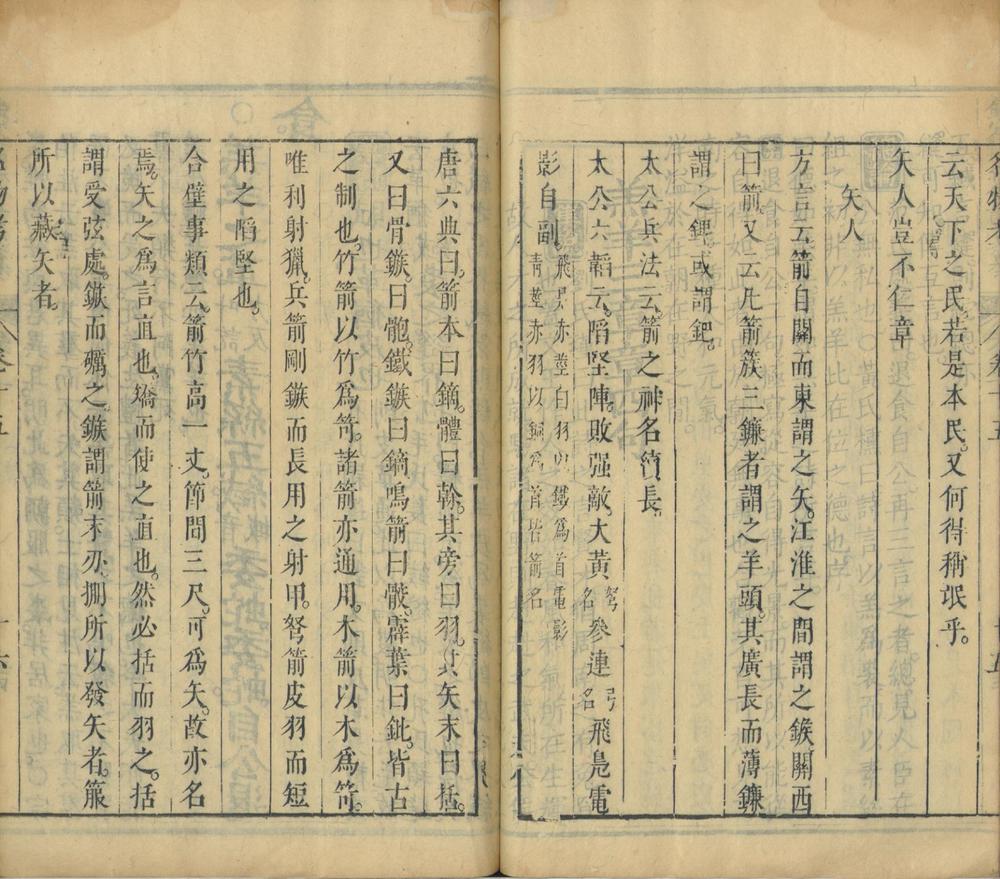 云天下之民。若是本民。又何得稱氓乎。
矢人豈不仁章
矢人
方言云箭自關而東謂之矢。江淮之間謂之鍭關西
曰箭。又云凡箭簇三鐮者謂之羊頭。其廣長而薄鐮
謂之錍。或謂鈀。
太公兵法云箭之神名續長。
太公六韜云。陷堅陣。敗强敵大黃弩名參連弓名飛鳧電
影自副。飛鳧赤莖白羽以鐵爲首電影青莖赤羽以銅爲首皆箭名
唐六典曰。箭本曰鏑。體曰榦。其旁曰羽。其矢末曰括。
又曰骨鏃。曰骲。鐵鏃曰鏑鳴箭曰骹。霹葉曰鈚。皆古
之制也。竹箭以竹爲笴。諸箭亦通用。木箭以木爲笴。
唯利射獵。兵箭剛鏃而長用之射甲。弩箭皮羽而短
用之陷堅也。
合璧事類云。箭竹高一丈。節間三尺。可爲矢。故亦名
焉。矢之爲言直也。矯而使之直也。然必括而羽之。括
謂受弦處。鏃而礪之。鏃謂箭末刃。掤所以發矢者。箙
所以藏矢者。